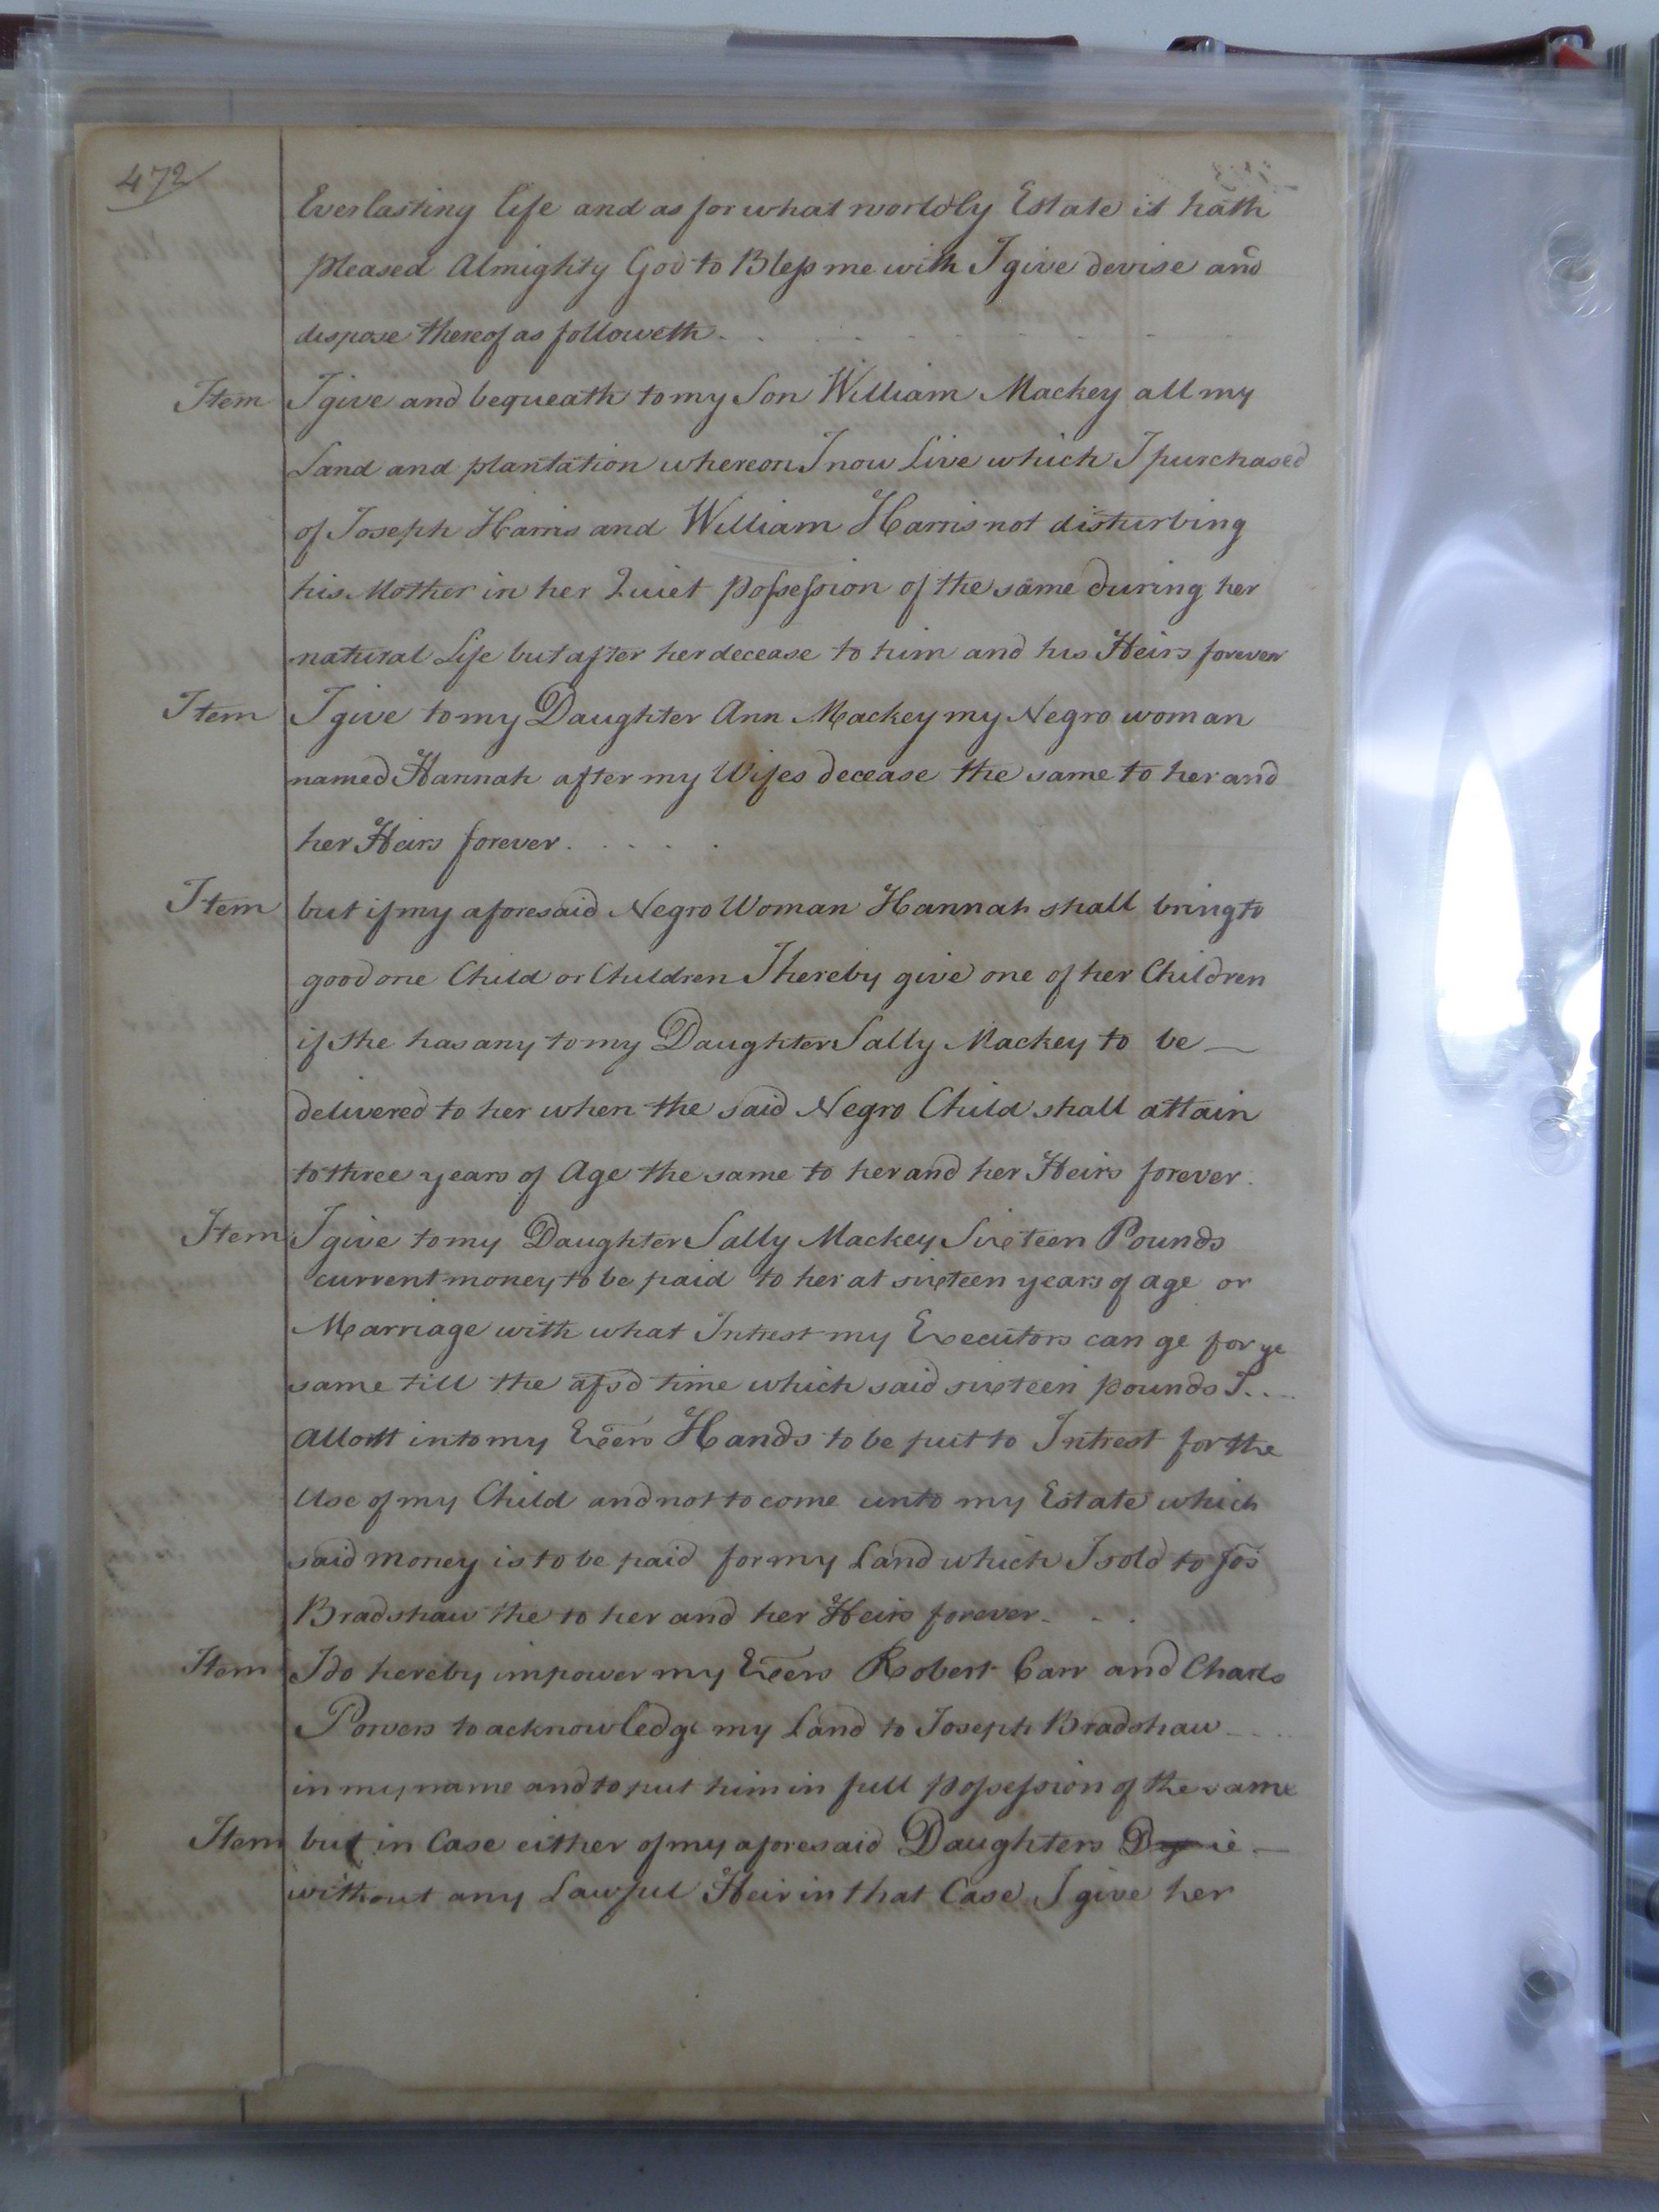 472
Everlasting life and as for what worldly Estate it hath
pleased Almighty God to Bless me with I give devise and
dispose thereof as followeth
Item I give and bequeath to my Son William Mackey all my
Land and plantation whereon I now Live which I purchased
of Joseph Harris and William Harris not disturbing
his Mother in her Quiet possession of the same during her
natural Life but after her decease to him and his Heirs forever
Item I give to my Daughter Ann Mackey my Negro woman
named Hannah after my Wifes decease the same to her and
her Heirs forever.
Item but if my aforesaid Negro Woman Hannah shall bring to
good one Child or Children I hereby give one of her Children
if She has any to my Daughter Sally Mackey to be
delivered to her when the said Negro Child shall attain
to three years of Age the same to her and her Heirs forever.
Item I give to my Daughter Sally Mackey Sixteen Pounds
current money to be paid to her at sixteen years of age or
Marriage with what Intrest my Executors can ge for ye
same till the afsd time which said sixteen pounds I
Allott into my Exers Hands to be put to Intrest for the
Use of my Child and not to come unto my Estate which
said money is to be paid for my Land which I sold to Jos
Bradshaw the to her and her Heirs forever
Item I do hereby impower my Exers Robert Carr and Charls
Powers to acknowledge my Land to Joseph Bradshaw
in my name and to put him in full possession of the same
Item but in Case either of my aforesaid Daughters
without any Lawful Heir in that Case I give her